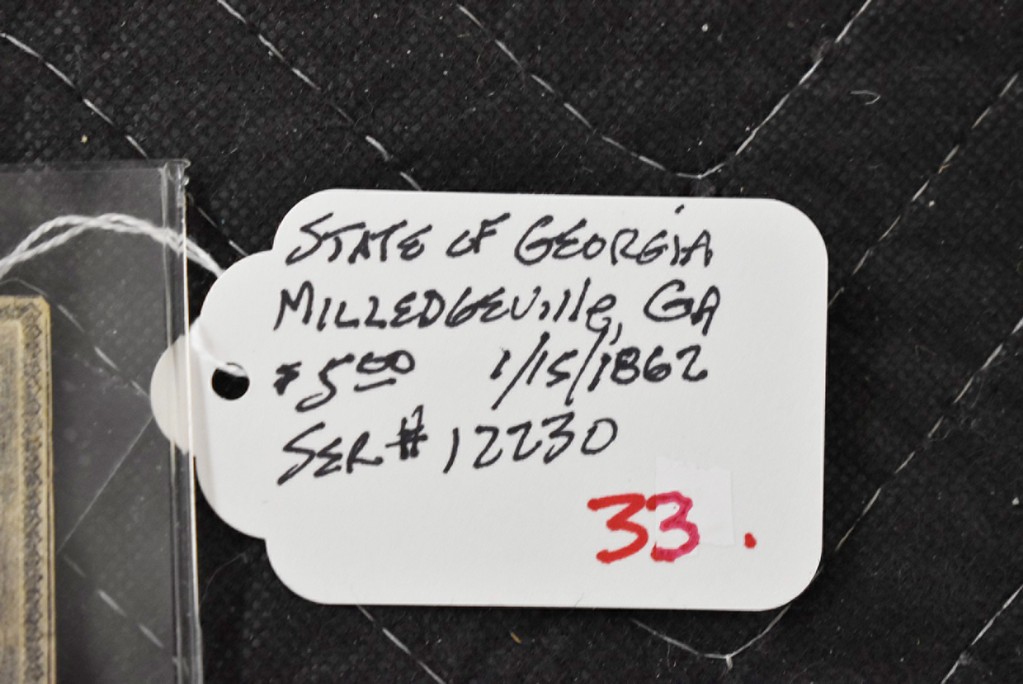 STATE OF GEORGIA
MILLEDGEVIlle, GA
$5.00 1/15/1862
SER# 12230
33.